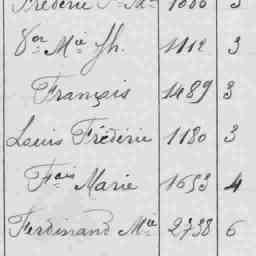 Frédéric F. Mie 1086 3
Vor Mie Jh. 1112 3
François 1489 3
Louis Frédéric 1180 3
Fçois Marie 1653 4
Ferdinand Mie 2738 6